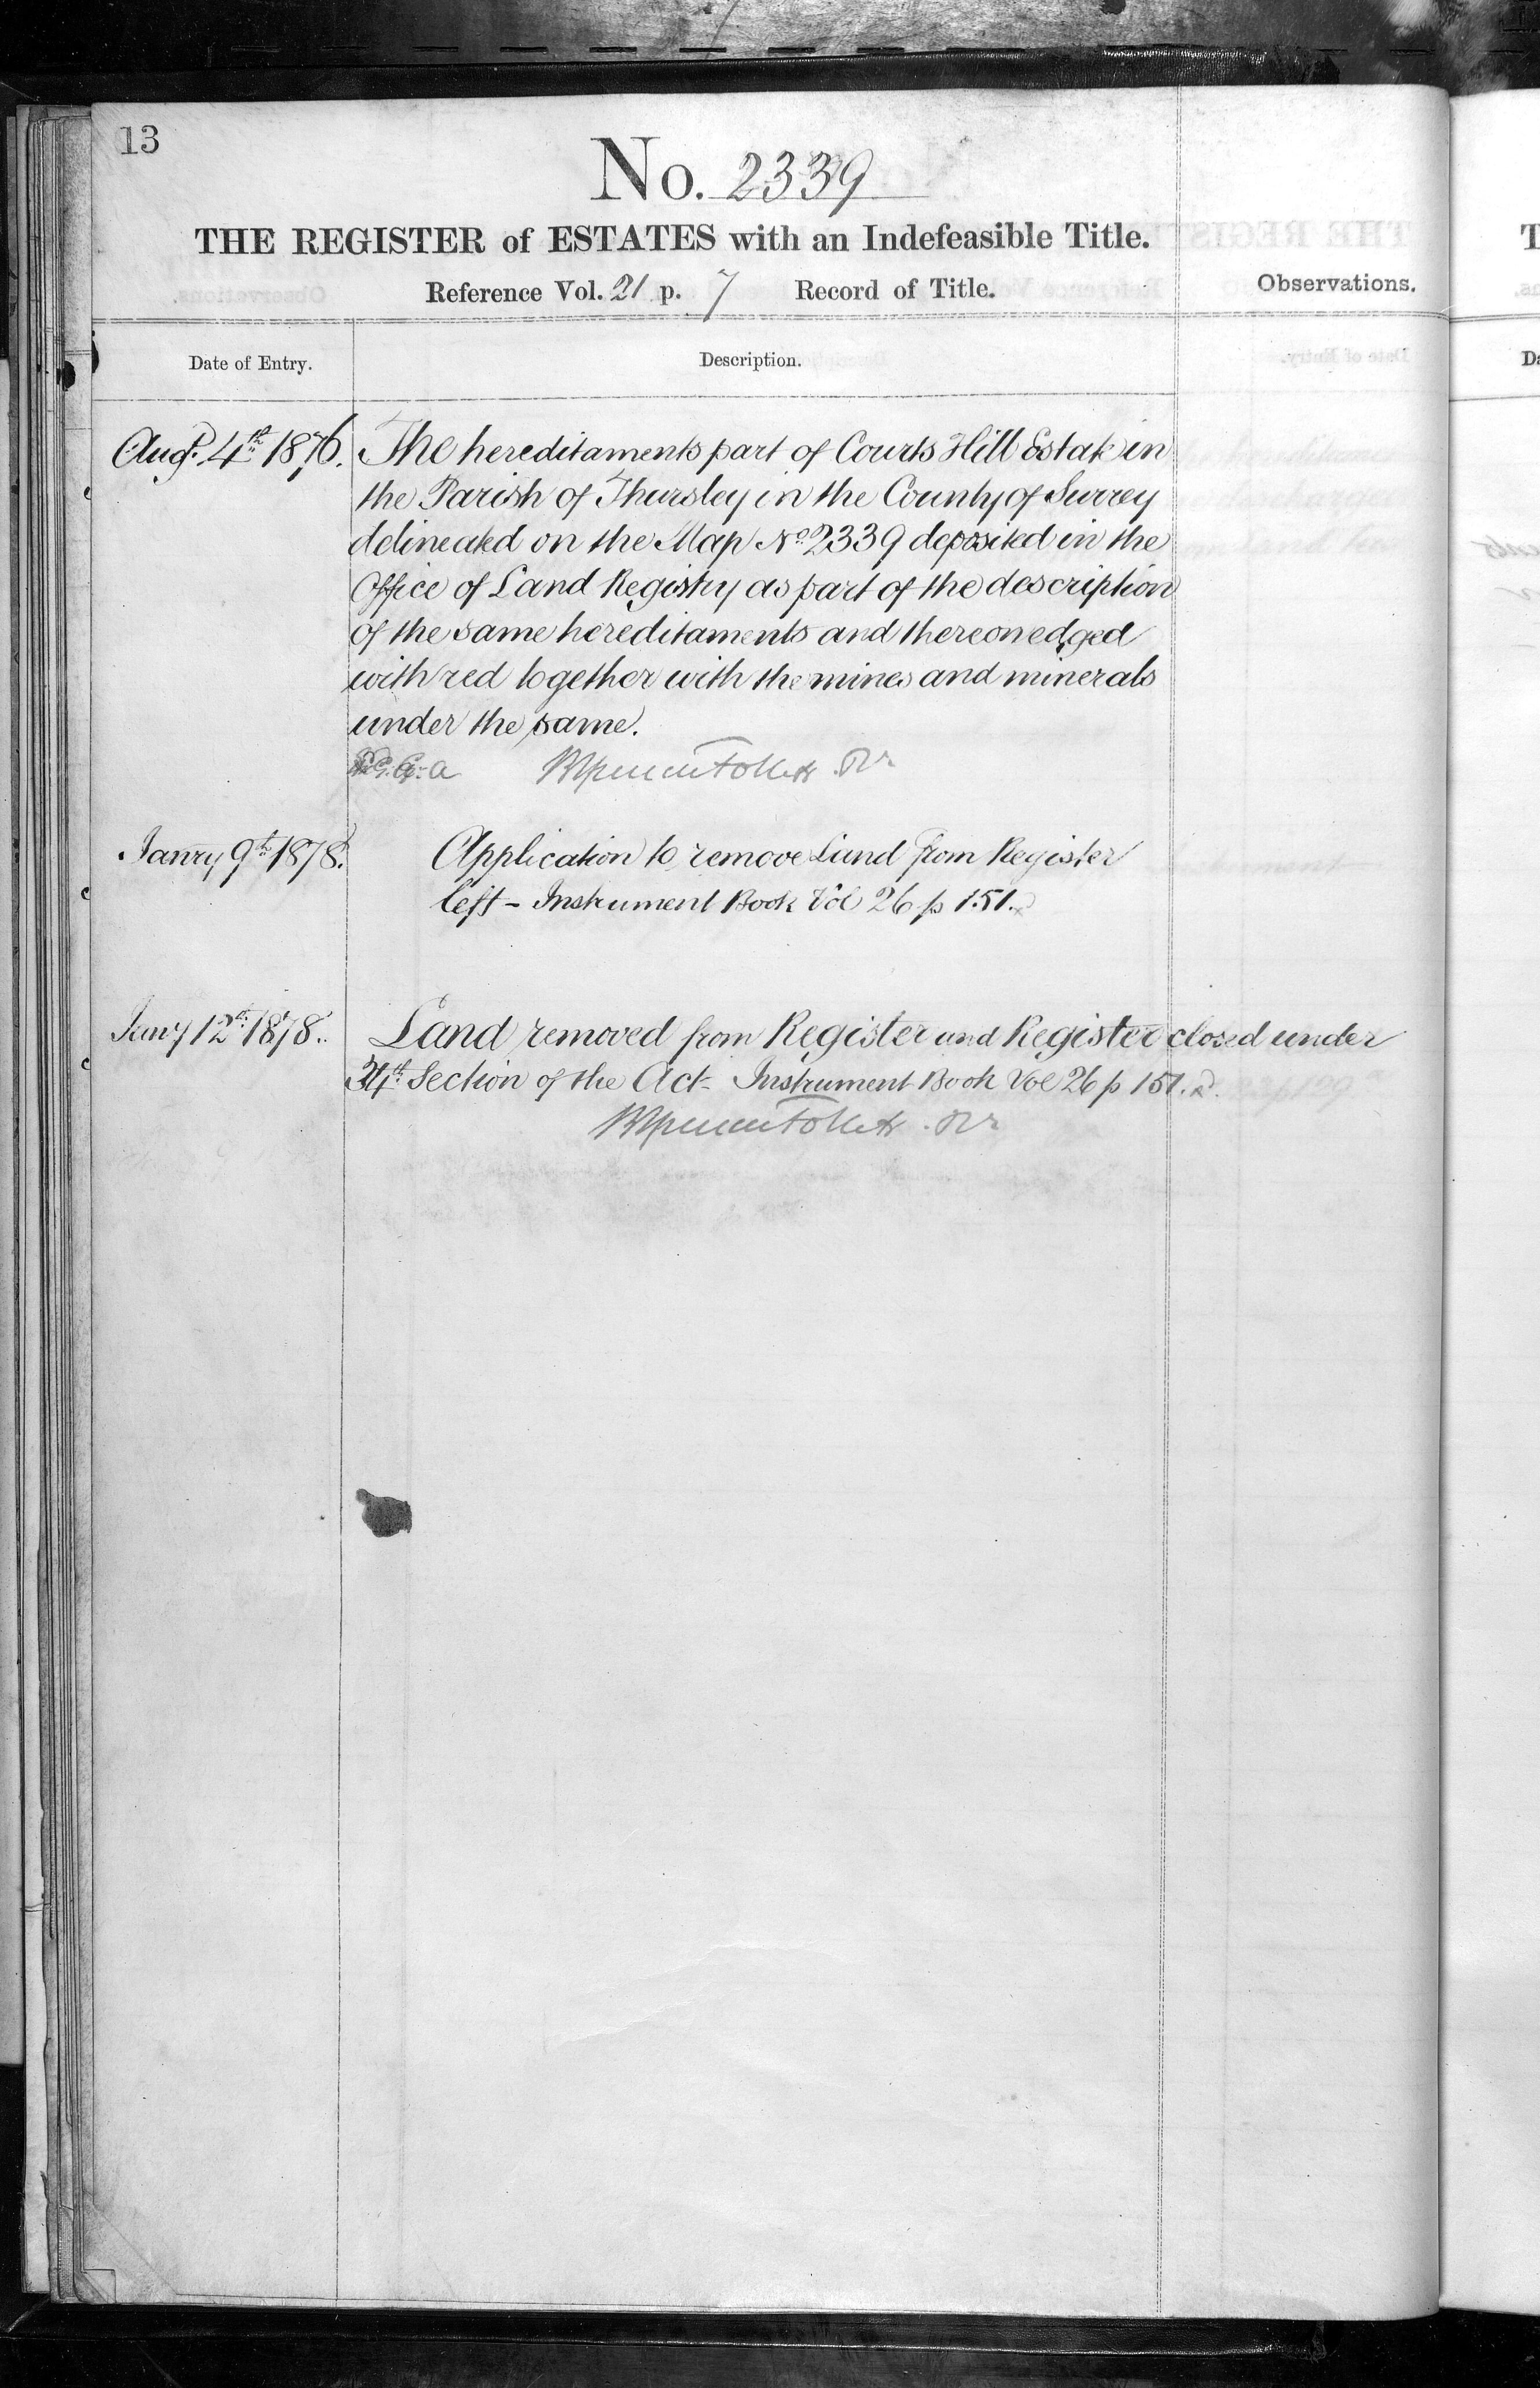 13
No. 2339
THE REGISTER of ESTATES with an Indefeasible Title.
Reference Vol. 21 p. 7 Record of Title.
Observations.
Date of Entry.
Description.
Augt. 4th 1876. The hereditaments part of Courts Hill Estate in
the Parish of Thursley in the County of Surrey
delineated on the Map No 2339 deposited in the
Office of Land Registry as part of the description
of the same hereditaments and thereon edged
with red together with the mines and minerals
under the same.
Janry 9th 1878. Application to remove Land from Register
left - Instrument Book Vol 26 p 151.
Jany 12th 1878. Land removed from Register and Register closed under
34th Section of the Act - Instrument Book Vol 26 p 151.